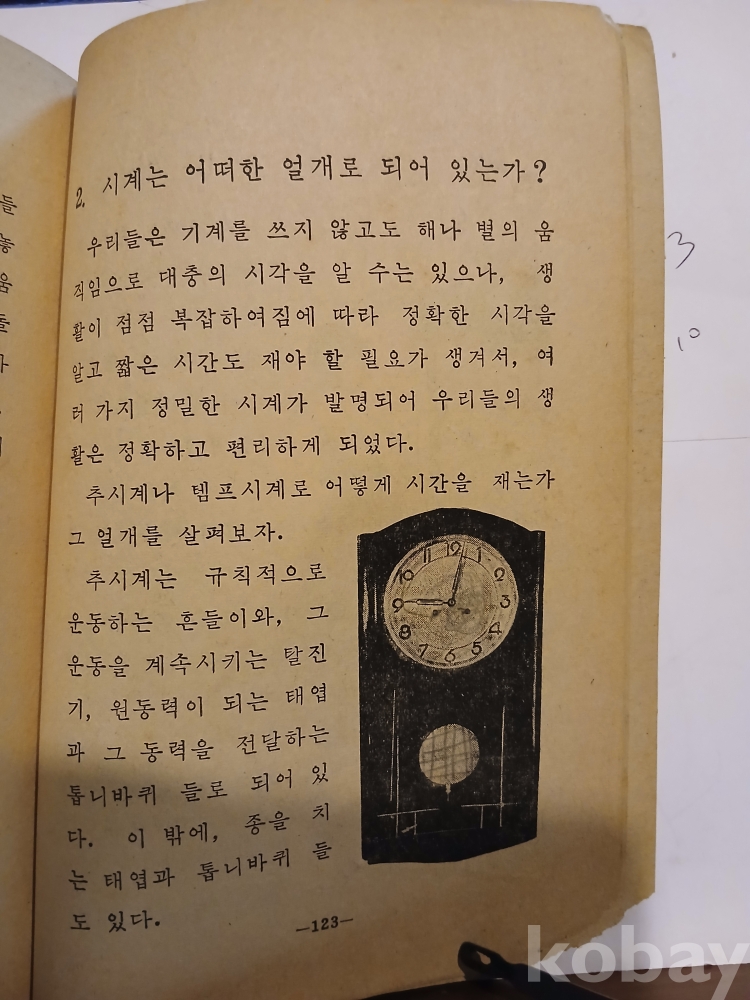 2. 시계는 어떠한 얼개로 되어 있는가?
우리들은 기계를 쓰지 않고도 해나 별의 움
직임으로 대충의 시각을 알 수는 있으나, 생
활이 점점 복잡하여짐에 따라 정확한 시각을
알고 짧은 시간도 재야 할 필요가 생겨서, 여
러 가지 정밀한 시계가 발명되어 우리들의 생
활은 정확하고 편리하게 되었다.
추시계나 템프시계로 어떻게 시간을 재는가
그 얼개를 살펴보자.
추시계는 규칙적으로
운동하는 흔들이와, 그
운동을 계속시키는 탈진
기, 원동력이 되는 태엽
과 그 동력을 전달하는
톱니바퀴 들로 되어 있
다. 이 밖에, 종을 치
는 태엽과 톱니바퀴 들
도 있다.
12
1
2
3
4
5
6
7
8
9
10
11
—123—
들
놓
움
3
10
kobay